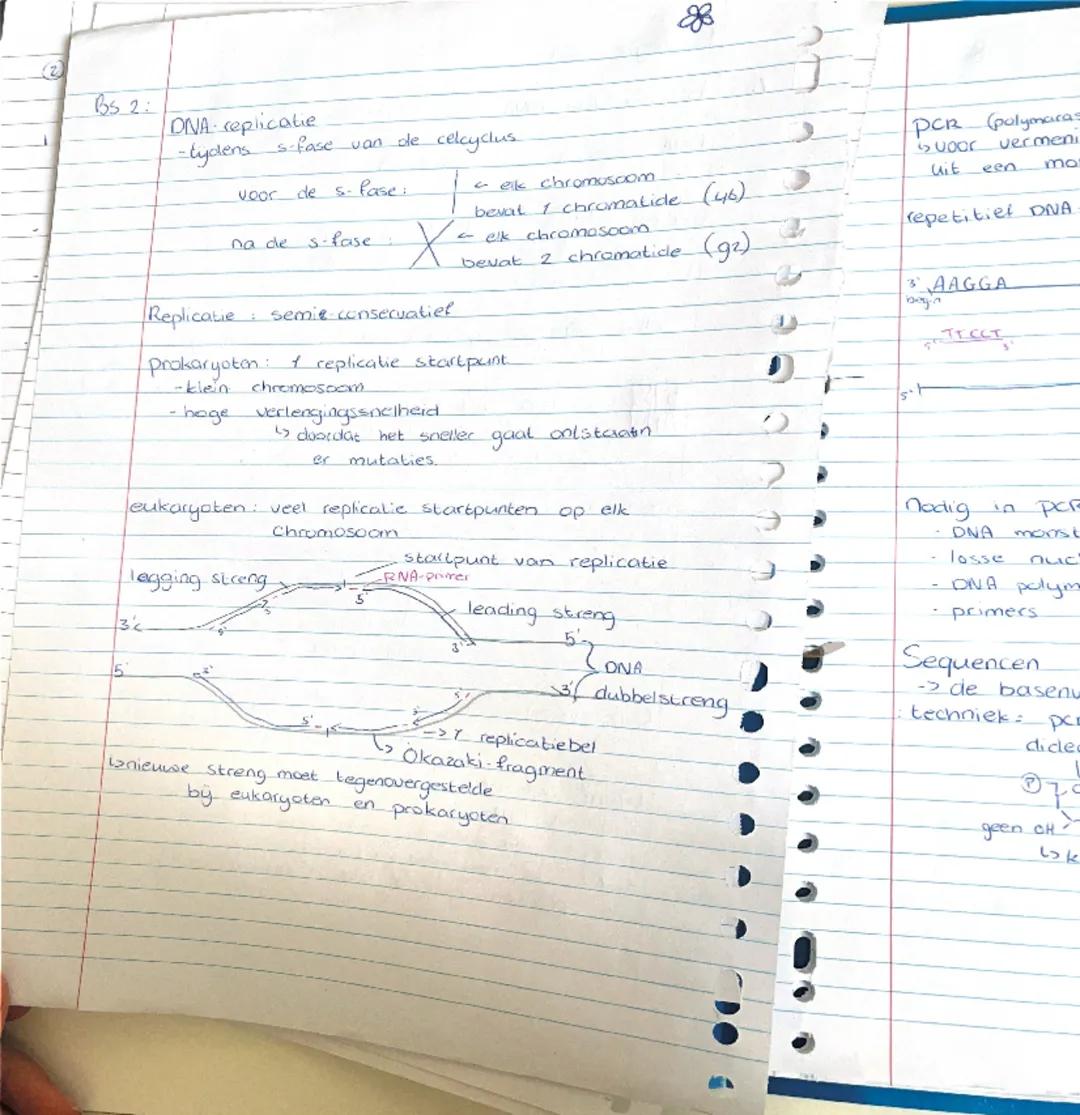 2
Bs 2:
DNA-replicatie
- tijdens s-fase van de celcyclus
voor de s-fase:
← elk chromosoom
bevat 1 chromatide (46)
na de s-fase:
← elk chromosoom
bevat 2 chromatide (92)
Replicatie: semie-conservatief
prokaryoten: 1 replicatie startpunt
- klein chromosoom
- hoge verlengingssnelheid
↳ doordat het sneller gaat ontstaatn
er mutaties.
eukaryoten: veel replicatie startpunten op elk
chromosoom
startpunt van replicatie
legging streng
RNA-primer
5'
3'
5'
leading streng
3'
3'
5'
DNA
5'
3'
3'
dubbelstreng
5'
5'
→ 1 replicatiebel
↳ Okazaki-fragment
↳ nieuwe streng moet tegenovergestelde
bij eukaryoten en prokaryoten
PCR (polymaras
↳ voor vermeni
uit een mo
repetitief DNA
3' AAGGA
begin
TTCCT
5' 3'
5'
nodig in PCR
- DNA monst
- losse nucl
- DNA polym
- primers
Sequencen
-> de basenv
: techniek: pcr
didec
P
geen OH
↳ k